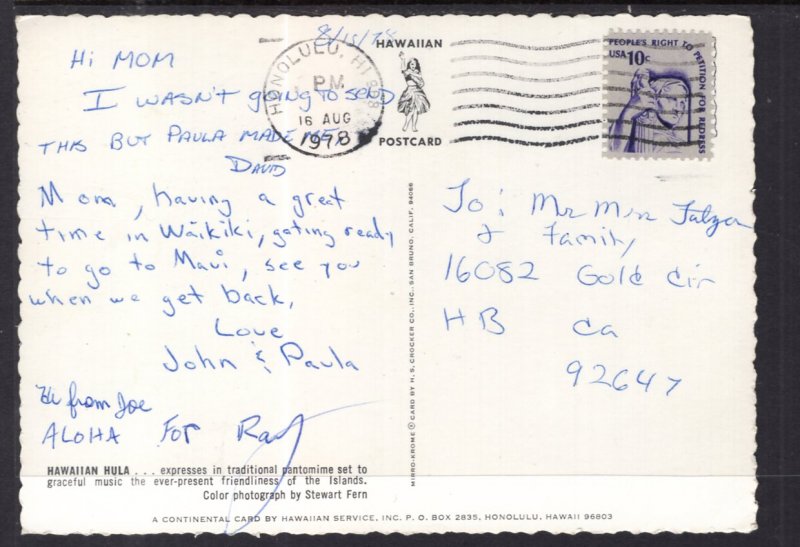 8/15/78
Hi MOM
I WASN'T going to SEND
THIS BUT PAULA MADE ME.
DAVID
Mom, having a great
time in Waikiki, gating ready
to go to Maui, see you
when we get back,
Love
John & Paula
Hi from Joe
ALOHA FOR Ray
HAWAIIAN HULA . . . expresses in traditional pantomime set to
graceful music the ever-present friendliness of the Islands.
Color photograph by Stewart Fern
A CONTINENTAL CARD BY HAWAIIAN SERVICE, INC. P. O. BOX 2835, HONOLULU, HAWAII 96803
MIRRO-KROME ® CARD BY H. S. CROCKER CO., INC., SAN BRUNO, CALIF. 94066
HONOLULU, HI
PM
16 AUG
1978
HAWAIIAN
POSTCARD
PEOPLE'S RIGHT TO PETITION FOR REDRESS
USA 10c
To: Mr Mrs
& Family
16082 Gold Cir
HB Ca
92647